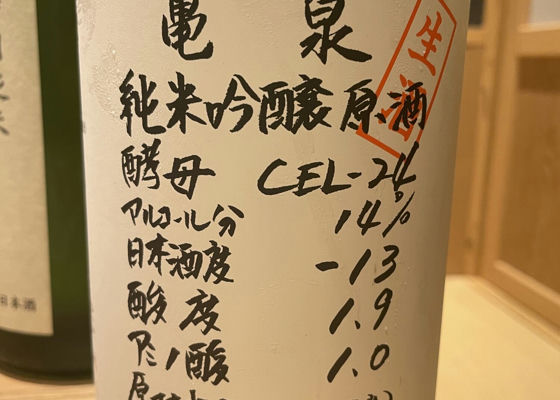 亀泉
純米吟醸原酒
生酒
酵母 CEL-24
アルコール分 14%
日本酒度 -13
酸度 1.9
アミノ酸 1.0
原
日本酒